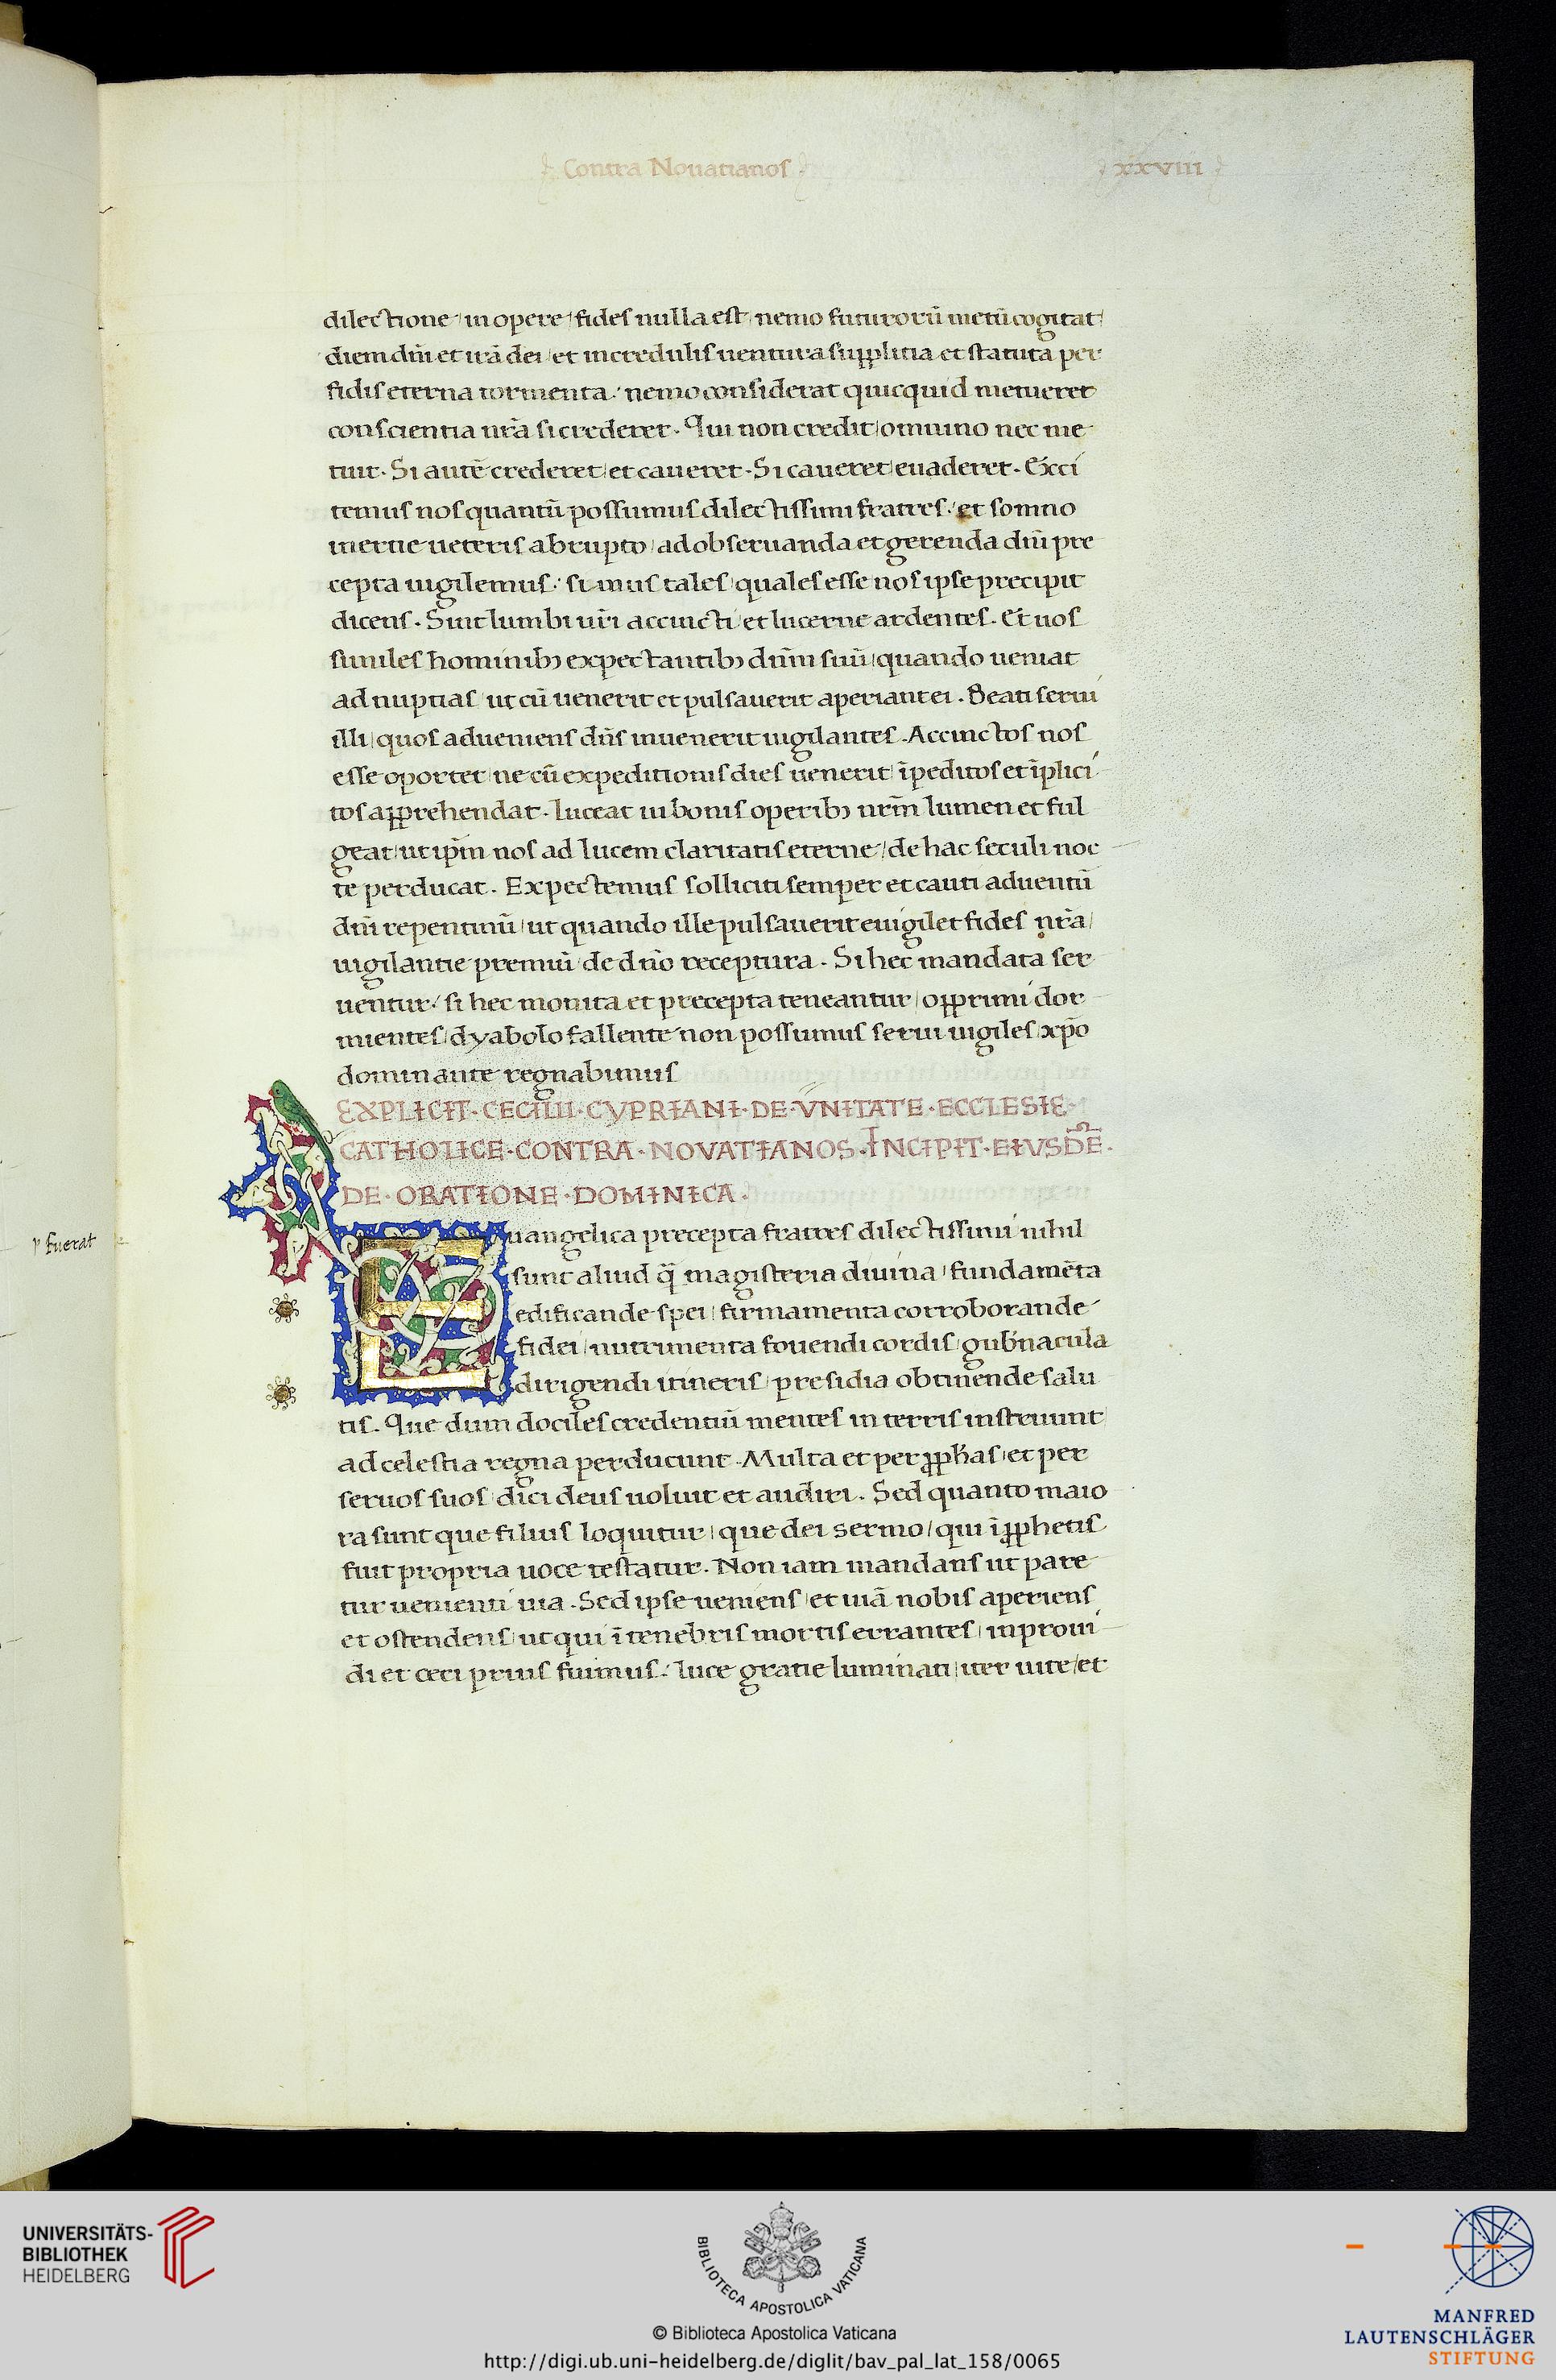 Contra Nouatianos
xxviii
dilectione / in opere / fides nulla est / nemo futuroru᷈ metū cogitat /
diem dn̄i et irā dei / et incredulis uentura supplitia et statuta per
fidis eterna tormenta : nemo considerat quicquid metueret
conscientia nr̄a si crederet . Qui non credit / omnino nec me
tuit . Si autē crederet / et caueret . Si caueret / euaderet . Exci
temus nos quantū possumus dilectissimi fratres : et somno
inertie ueteris abrupto / ad obseruanda et gerenda dn̄i pre
cepta uigilemus : simus tales / quales esse nos ipse precipit
dicens . Sint lumbi ur̄i accincti / et lucerne ardentes . Et uos
similes hominibꝫ expectantibꝫ dn̄m suū / quando ueniat
ad nuptias / ut cū uenerit et pulsauerit aperiant ei . Beati serui
illi / quos adueniens dn̄s inuenerit uigilantes . Accinctos nos
esse oportet / ne cū expeditionis dies uenerit / īpeditos et īplici
tos apprehendat . luceat in bonis operibꝫ nr̄m lumen et ful
geat / ut ip̄m nos ad lucem claritatis eterne / de hac seculi noc
te perducat . Expectemus solliciti semper et cauti aduentū
dn̄i repentinū / ut quando ille pulsauerit euigilet fides nr̄a /
uigilantie premiū de dn̄o receptura . Si hec mandata ser
uentur / si hec monita et precepta teneantur / opprimi dor
mientes / dyabolo fallente non possumus serui uigiles / xp̄o
dominante regnabimus
EXPLICIT · CECILII · CYPRIANI · DE · VNITATE · ECCLESIE
CATHOLICE · CONTRA · NOVATIANOS · INCIPIT · EIVSDĒ ·
DE · ORATIONE · DOMINICA ·
Euangelica precepta fratres dilectissimi nihil
sunt aliud q̄ magisteria diuina / fundamēta
edificande spei / firmamenta corroborande
fidei / nutrimenta fouendi cordis / gub̄nacula
dirigendi itineris / presidia obtinende salu
tis . Que dum dociles credentiū mentes in terris instruunt
ad celestia regna perducunt . Multa et per ꝓphas / et per
seruos suos / dici deus uoluit et audiri . Sed quanto maio
ra sunt que filius loquitur / que dei sermo / qui ī ꝓphetis
fuit propria uoce testatur . Non iam mandans ut pare
tur uenienti uia . Sed ipse ueniens / et uiā nobis aperiens
et ostendens / ut qui ī tenebris mortis errantes / inproui
di et ceci prius fuimus : luce gratie luminati / iter uite / et
fuerat
UNIVERSITÄTS-
BIBLIOTHEK
HEIDELBERG
BIBLIOTECA APOSTOLICA VATICANA
© Biblioteca Apostolica Vaticana
http://digi.ub.uni-heidelberg.de/diglit/bav_pal_lat_158/0065
MANFRED
LAUTENSCHLÄGER
STIFTUNG